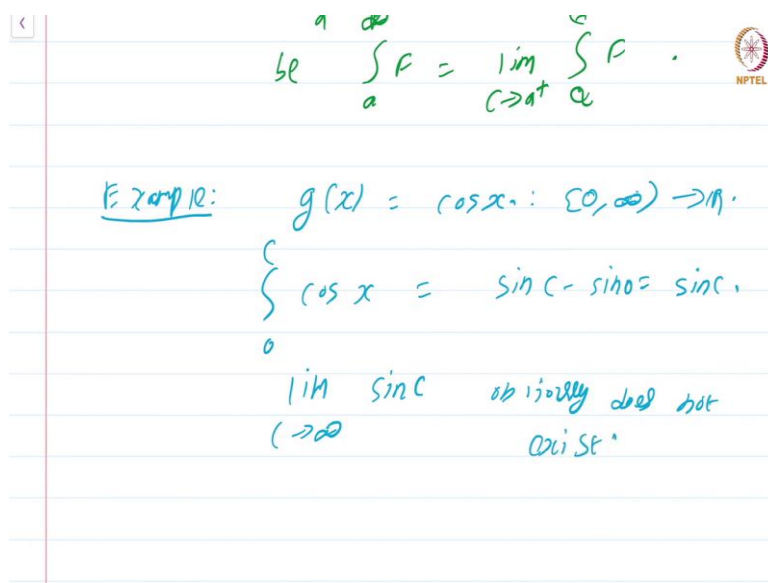 be ∫ F = lim ∫ F .
a C→a⁺ a
NPTEL
Example: g(x) = cos x. : [0, ∞) → ℝ.
C
∫ cos x = sin C - sin 0 = sin C.
0
lim sin C obviously does not
C→∞ exist.